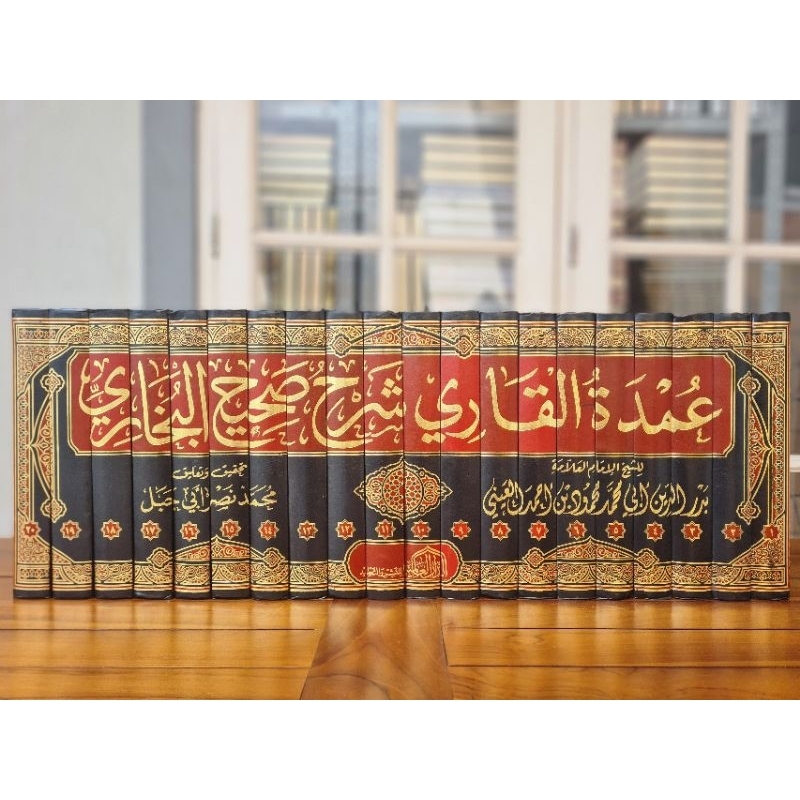 عُمْدَةُ القَارِي شَرْحُ صَحِيحِ البُخَارِي
للشيخ الإمام العلامة
بدر الدين أبي محمد محمود بن أحمد العيني
تحقيق وتعليق
محمد نصر أبي جبل
١ ٢ ٣ ٤ ٥ ٦ ٧ ٨ ٩ ١٠ ١١ ١٢ ١٣ ١٤ ١٥ ١٦ ١٧ ١٨ ١٩ ٢٠